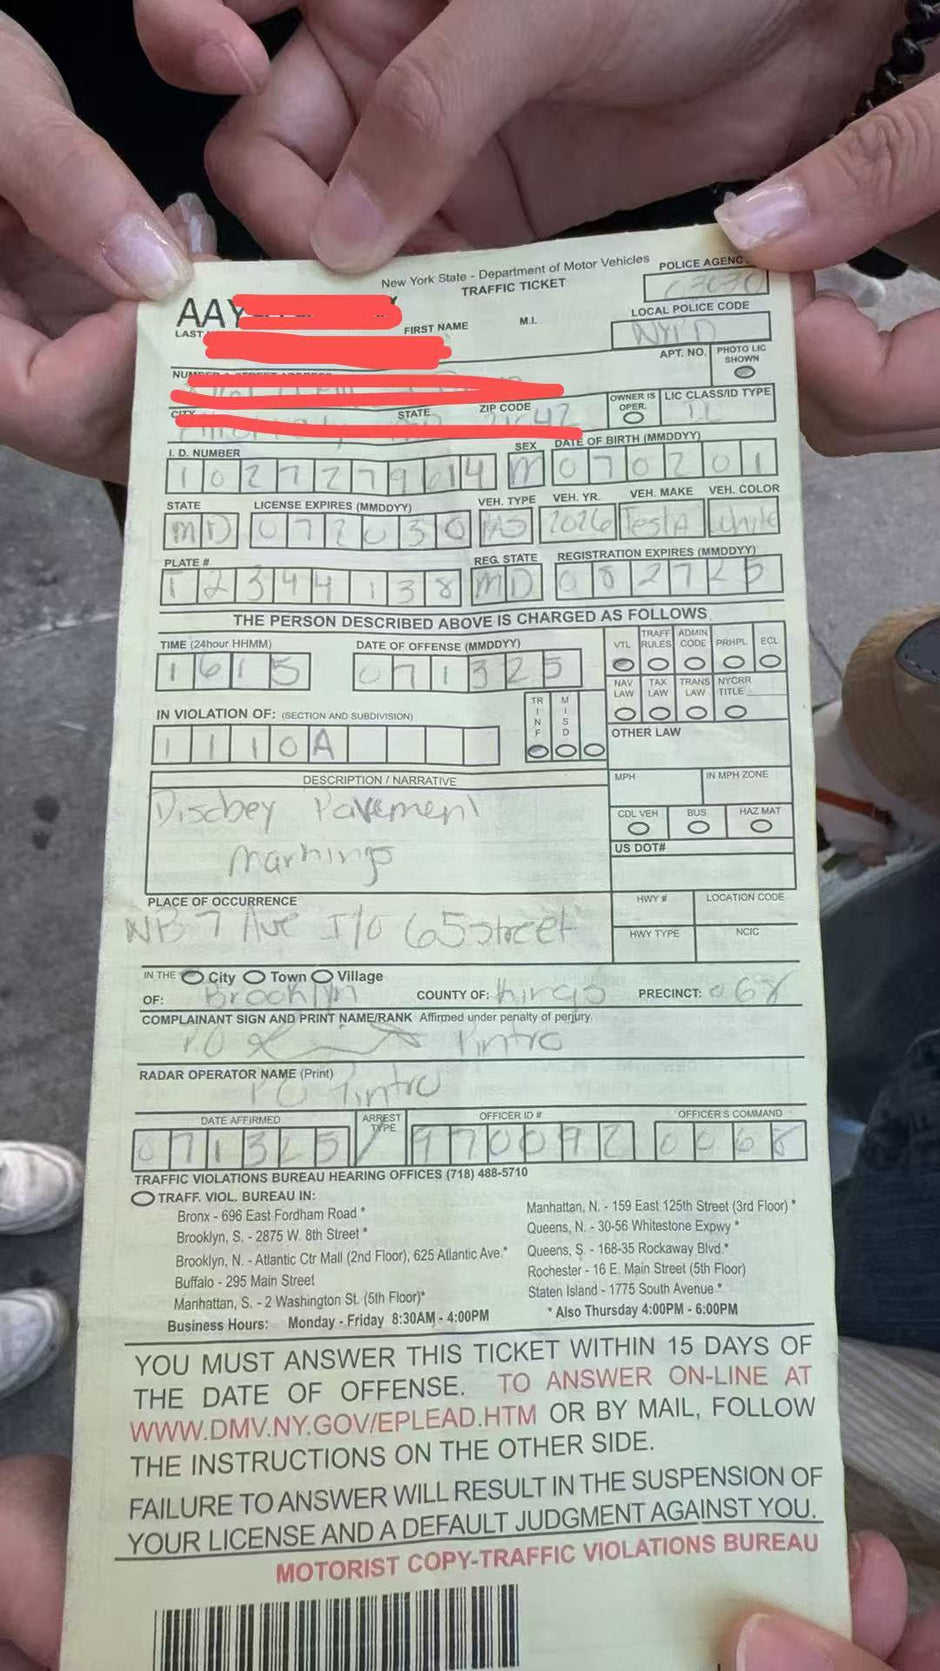 New York State - Department of Motor Vehicles
TRAFFIC TICKET
POLICE AGENCY
AAY
LAST
FIRST NAME
M.I.
LOCAL POLICE CODE
NYPD
APT. NO.
PHOTO LIC SHOWN
CITY
STATE
ZIP CODE
OWNER IS OPER.
LIC CLASS/ID TYPE
I. D. NUMBER
SEX
DATE OF BIRTH (MMDDYY)
1027279614 M 070201
STATE
LICENSE EXPIRES (MMDDYY)
VEH. TYPE
VEH. YR.
VEH. MAKE
VEH. COLOR
MD 072030 2026 TeslA White
PLATE #
REG. STATE
REGISTRATION EXPIRES (MMDDYY)
12344138 MD 082725
THE PERSON DESCRIBED ABOVE IS CHARGED AS FOLLOWS
TIME (24hour HHMM)
DATE OF OFFENSE (MMDDYY)
1615 071325
VTL
TRAFF RULES
ADMIN CODE
PRHPL
ECL
NAV LAW
TAX LAW
TRANS LAW
NYCRR TITLE
IN VIOLATION OF: (SECTION AND SUBDIVISION)
TR INF
MISD
1110A
OTHER LAW
DESCRIPTION / NARRATIVE
MPH
IN MPH ZONE
Disobey Pavement
Markings
CDL VEH
BUS
HAZ MAT
US DOT#
PLACE OF OCCURRENCE
HWY #
LOCATION CODE
NB 7 Ave I/O 65 Street
HWY TYPE
NCIC
IN THE City Town Village
OF: Brooklyn COUNTY OF: Kings PRECINCT: 068
COMPLAINANT SIGN AND PRINT NAME/RANK Affirmed under penalty of perjury.
PO
RADAR OPERATOR NAME (Print)
PO
DATE AFFIRMED
ARREST TYPE
OFFICER ID #
OFFICER'S COMMAND
071325 970092 0068
TRAFFIC VIOLATIONS BUREAU HEARING OFFICES (718) 488-5710
TRAFF. VIOL. BUREAU IN:
Bronx - 696 East Fordham Road *
Brooklyn, S. - 2875 W. 8th Street *
Brooklyn, N. - Atlantic Ctr Mall (2nd Floor), 625 Atlantic Ave.*
Buffalo - 295 Main Street
Manhattan, S. - 2 Washington St. (5th Floor)*
Manhattan, N. - 159 East 125th Street (3rd Floor) *
Queens, N. - 30-56 Whitestone Expwy *
Queens, S. - 168-35 Rockaway Blvd.*
Rochester - 16 E. Main Street (5th Floor)
Staten Island - 1775 South Avenue *
Business Hours: Monday - Friday 8:30AM - 4:00PM
* Also Thursday 4:00PM - 6:00PM
YOU MUST ANSWER THIS TICKET WITHIN 15 DAYS OF
THE DATE OF OFFENSE. TO ANSWER ON-LINE AT
WWW.DMV.NY.GOV/EPLEAD.HTM OR BY MAIL, FOLLOW
THE INSTRUCTIONS ON THE OTHER SIDE.
FAILURE TO ANSWER WILL RESULT IN THE SUSPENSION OF
YOUR LICENSE AND A DEFAULT JUDGMENT AGAINST YOU.
MOTORIST COPY-TRAFFIC VIOLATIONS BUREAU